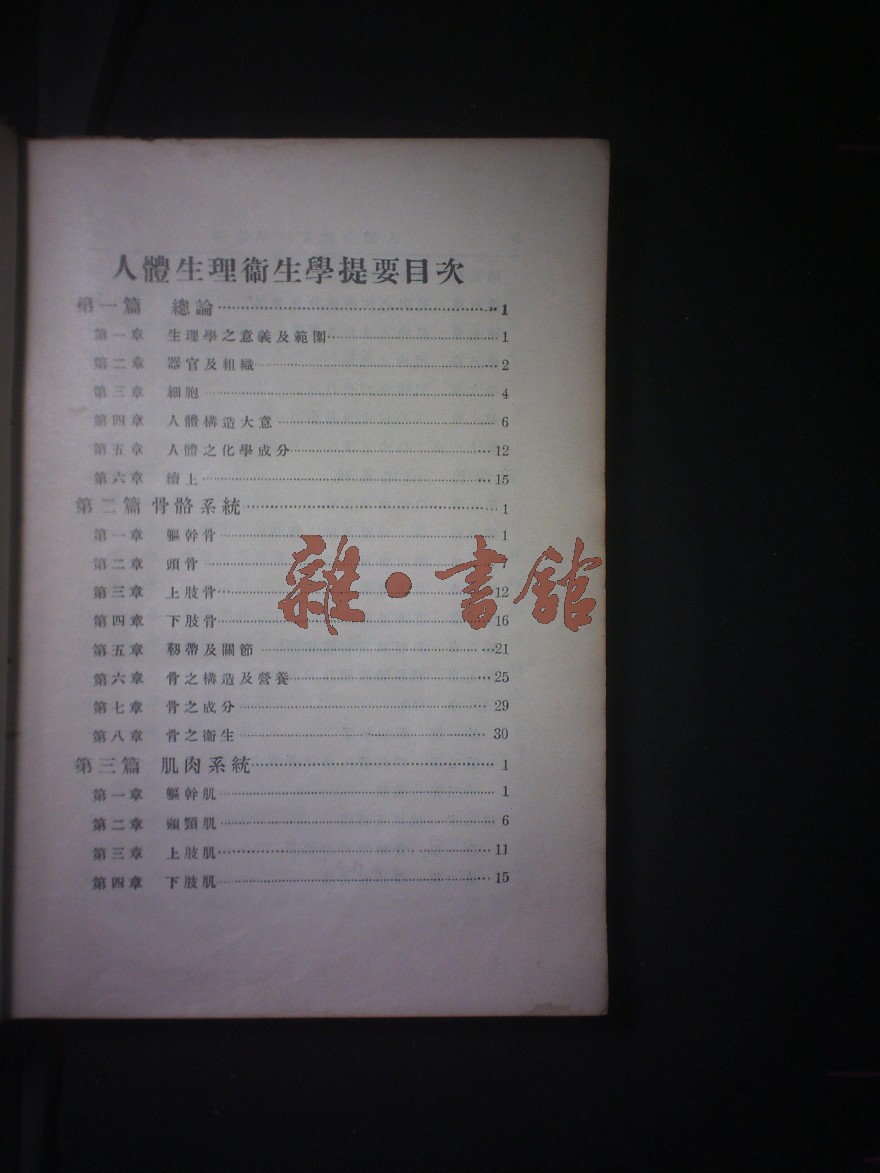 人體生理衞生學提要目次
第一篇 總論 1
第一章 生理學之意義及範圍 1
第二章 器官及組織 2
第三章 細胞 4
第四章 人體構造大意 6
第五章 人體之化學成分 12
第六章 續上 15
第二篇 骨骼系統 1
第一章 軀幹骨 1
第二章 頭骨 7
第三章 上肢骨 12
第四章 下肢骨 16
第五章 靱帶及關節 21
第六章 骨之構造及營養 25
第七章 骨之成分 29
第八章 骨之衞生 30
第三篇 肌肉系統 1
第一章 軀幹肌 1
第二章 頭頸肌 6
第三章 上肢肌 11
第四章 下肢肌 15
雜·書館